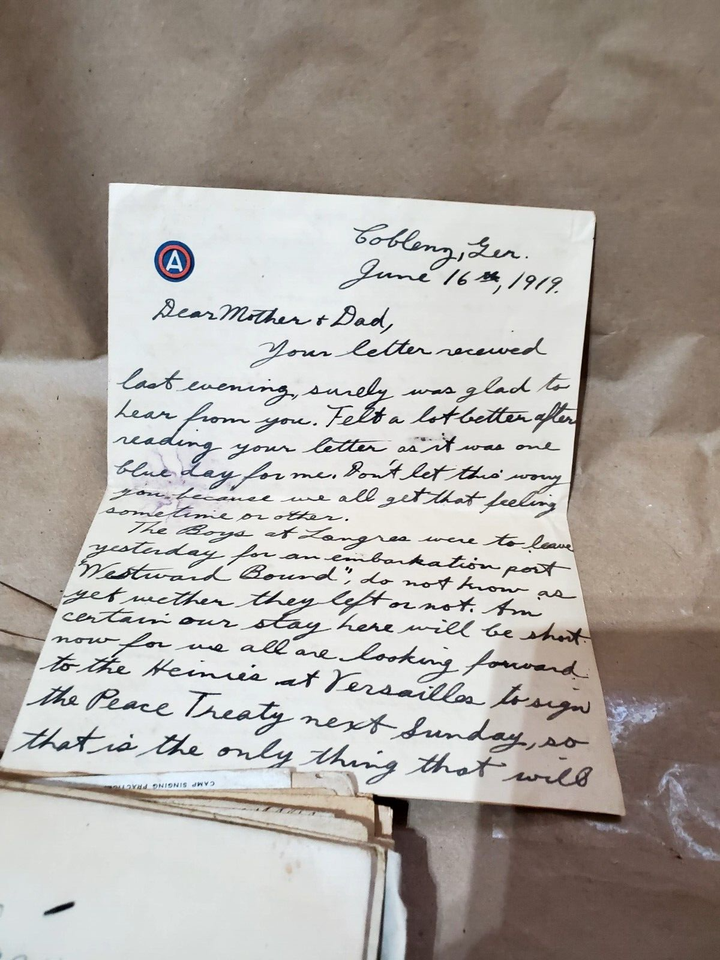 A
Coblenz, Ger.
June 16th, 1919.
Dear Mother & Dad,
Your letter received
last evening, surely was glad to
hear from you. Felt a lot better after
reading your letter as it was one
blue day for me. Don't let this worry
you because we all get that feeling
sometime or other.
The Boys at Langres were to leave
yesterday for an embarkation port
"Westward Bound", do not know as
yet wether they left or not. Am
certain our stay here will be short
now for we all are looking forward
to the Heinies at Versailles to sign
the Peace Treaty next Sunday, so
that is the only thing that will
CAMP SINGING PRACTICE